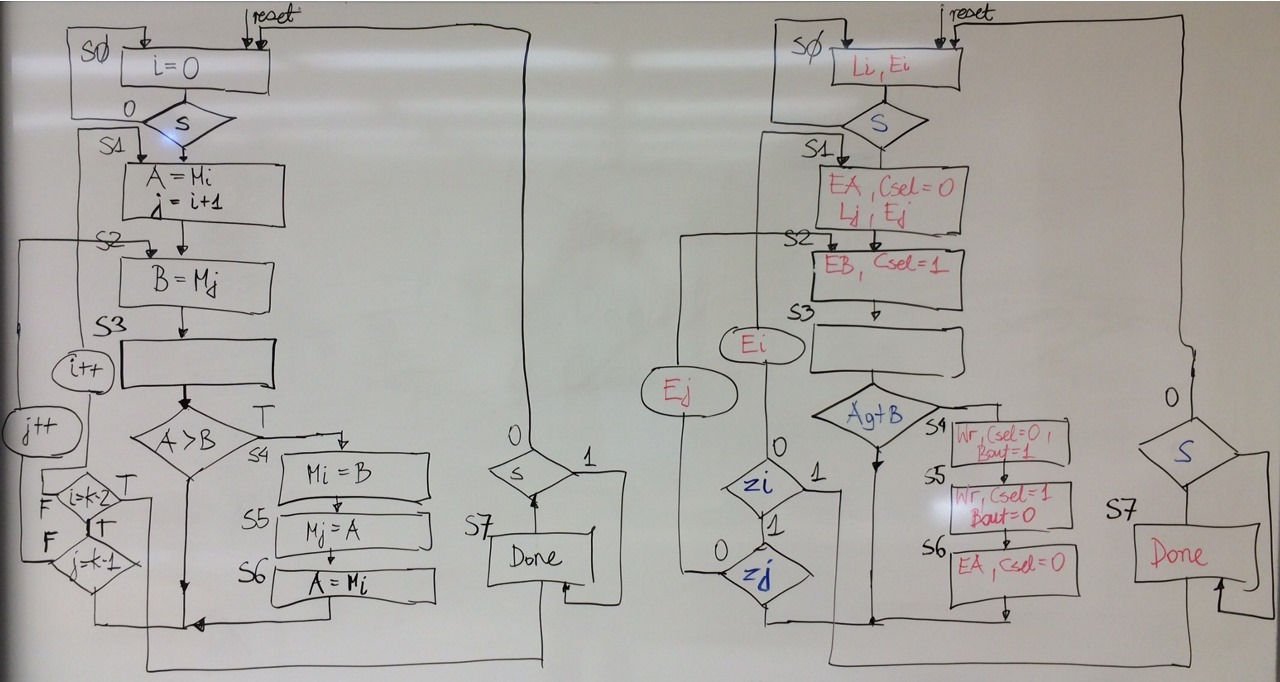 reset
SØ
i=0
0
S
S1
A = Mi
j = i+1
S2
B = Mj
S3
i++
j++
A > B
T
S4
Mi = B
S5
Mj = A
S6
A = Mi
i=k-2
T
F
T
F
j=k-1
0
S
1
S7
Done
reset
SØ
Li, Ei
S
S1
EA, Csel=0
Lj, Ej
S2
EB, Csel=1
S3
Ei
Ej
AgtB
S4
Wr, Csel=0,
Bout=1
S5
Wr, Csel=1
Bout=0
S6
EA, Csel=0
0
zi
1
1
0
zj
0
S
S7
Done